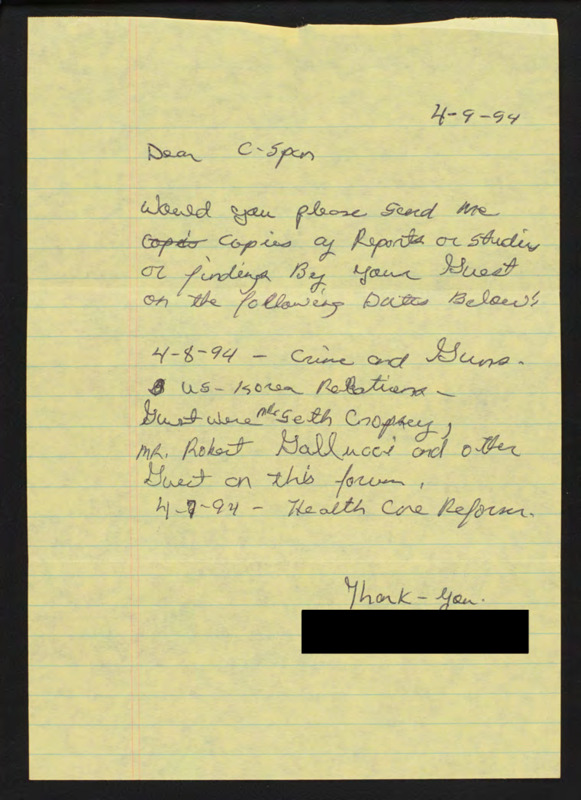 4-9-94
Dear C-Span
Would you please send me
copies of Reports or studies
or findings By your Guest
on the following Dates Below:
4-8-94 - Crime and Guns.
US - Korea Relations -
Guest were Mr. Seth Cropsey,
MR. Robert Gallucci and other
Guest on this forum.
4-7-94 - Health Care Reform.
Thank - you.